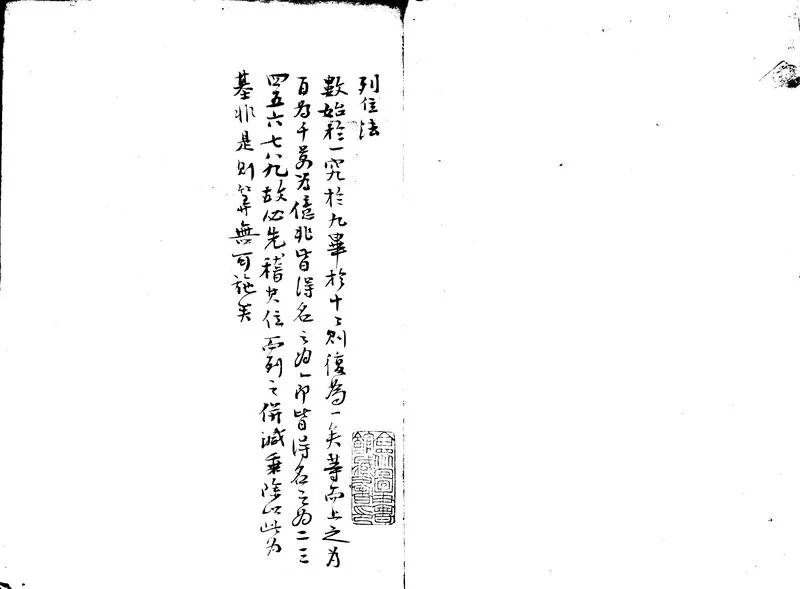 列位法
數始於一究於九畢於十〻則復為一矣等而上之為
百為千萬為億非皆得名之為一即皆得名之為二三
四五六七八九故必先稽其位而列之併減乘除以此為
基非是則算無可施矣